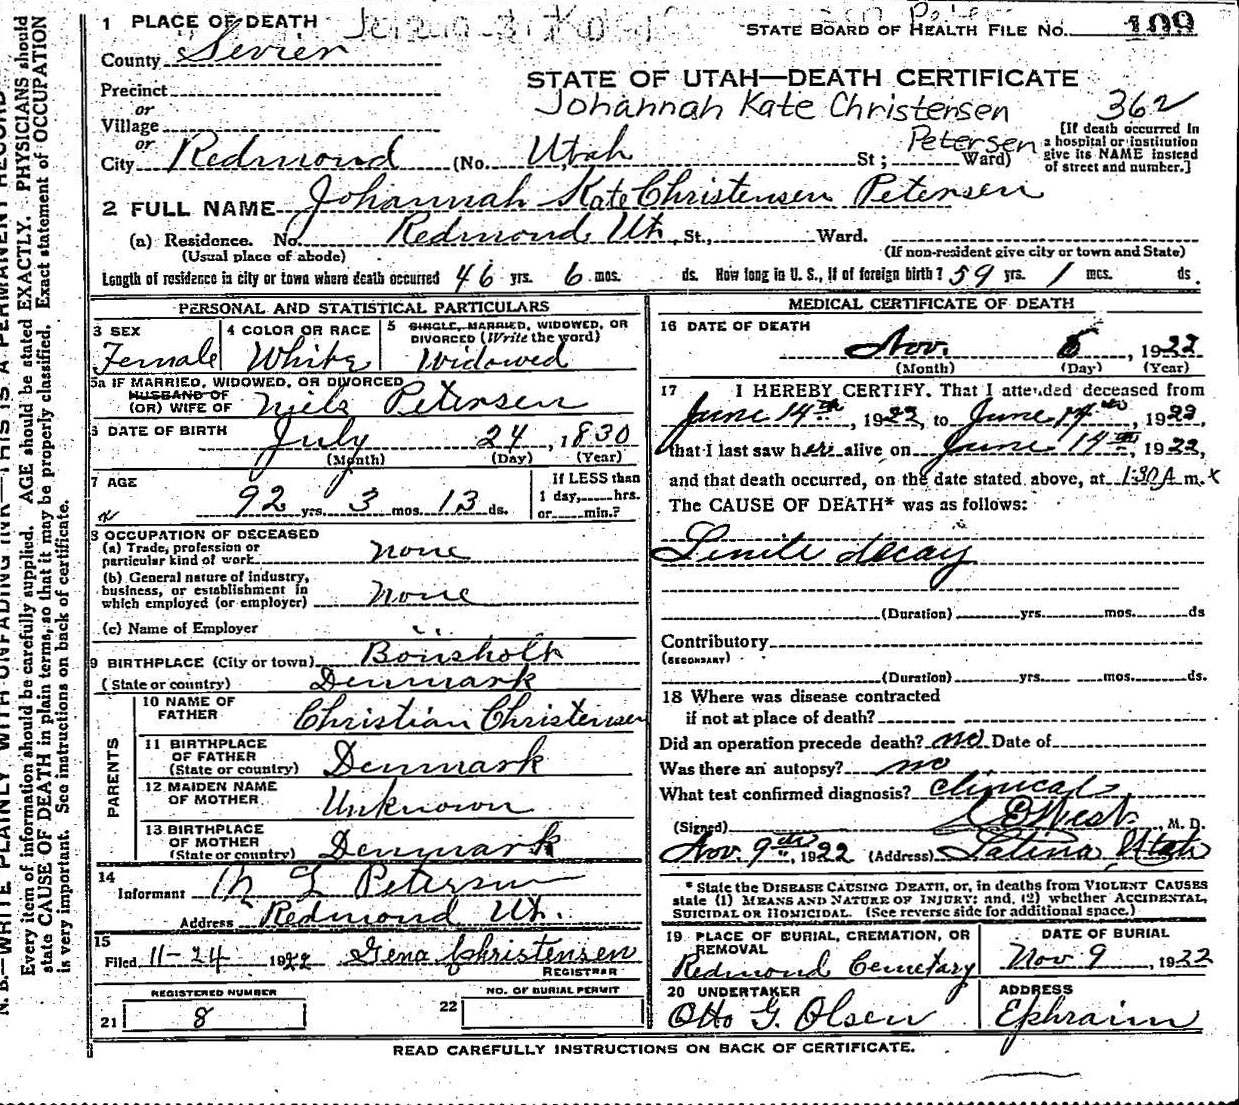 1 PLACE OF DEATH
STATE BOARD OF HEALTH FILE No. 109
County Sevier
STATE OF UTAH—DEATH CERTIFICATE
Precinct
Johannah Kate Christensen Petersen
362
or
Village
or
City Redmond (No. Utah St; Ward)
[If death occurred in a hospital or institution give its NAME instead of street and number.]
2 FULL NAME Johannah Kate Christensen Petersen
(a) Residence. No. Redmond Ut. St., Ward.
(Usual place of abode) (If non-resident give city or town and State)
Length of residence in city or town where death occurred 46 yrs. 6 mos. ds. How long in U. S., if of foreign birth? 59 yrs. 1 mos. ds
PERSONAL AND STATISTICAL PARTICULARS
3 SEX
Female
4 COLOR OR RACE
White
5 SINGLE, MARRIED, WIDOWED, OR
DIVORCED (Write the word)
Widowed
5a IF MARRIED, WIDOWED, OR DIVORCED
HUSBAND OF
(OR) WIFE OF Niels Petersen
6 DATE OF BIRTH July 24, 1830
(Month) (Day) (Year)
7 AGE
92 yrs. 3 mos. 13 ds.
If LESS than
1 day, hrs.
or min.?
8 OCCUPATION OF DECEASED
(a) Trade, profession or
particular kind of work none
(b) General nature of industry,
business, or establishment in
which employed (or employer) none
(c) Name of Employer
9 BIRTHPLACE (City or town)
(State or country) Denmark
PARENTS
10 NAME OF
FATHER Christian Christensen
11 BIRTHPLACE
OF FATHER
(State or country) Denmark
12 MAIDEN NAME
OF MOTHER Unknown
13 BIRTHPLACE
OF MOTHER
(State or country) Denmark
14
Informant Petersen
Address Redmond Ut.
15
Filed 11-24 1922 Gena Christensen
REGISTRAR
REGISTERED NUMBER
21 8
NO. OF BURIAL PERMIT
22
MEDICAL CERTIFICATE OF DEATH
16 DATE OF DEATH
Nov. , 1922
(Month) (Day) (Year)
17 I HEREBY CERTIFY. That I attended deceased from
June 14th, 1922, to June 14th, 1922
that I last saw her alive on June 14th, 1922,
and that death occurred, on the date stated above, at 1:30 A m.
The CAUSE OF DEATH* was as follows:
Senile decay
(Duration) yrs. mos. ds
Contributory
(SECONDARY)
(Duration) yrs. mos. ds.
18 Where was disease contracted
if not at place of death?
Did an operation precede death? no Date of
Was there an autopsy? no
What test confirmed diagnosis? Clinical
(Signed) West, M. D.
Nov. 9th, 1922 (Address) Salina Utah
* State the DISEASE CAUSING DEATH, or, in deaths from VIOLENT CAUSES
state (1) MEANS AND NATURE OF INJURY: and, (2) whether ACCIDENTAL,
SUICIDAL OR HOMICIDAL. (See reverse side for additional space.)
19 PLACE OF BURIAL, CREMATION, OR
REMOVAL
Redmond Cemetary
DATE OF BURIAL
Nov 9, 1922
20 UNDERTAKER
Otto G. Olsen
ADDRESS
Ephraim
READ CAREFULLY INSTRUCTIONS ON BACK OF CERTIFICATE.
N. B.—WRITE PLAINLY, WITH UNFADING INK—THIS IS A PERMANENT RECORD
Every item of information should be carefully supplied. AGE should be stated EXACTLY. PHYSICIANS should
state CAUSE OF DEATH in plain terms, so that it may be properly classified. Exact statement of OCCUPATION
is very important. See instructions on back of certificate.